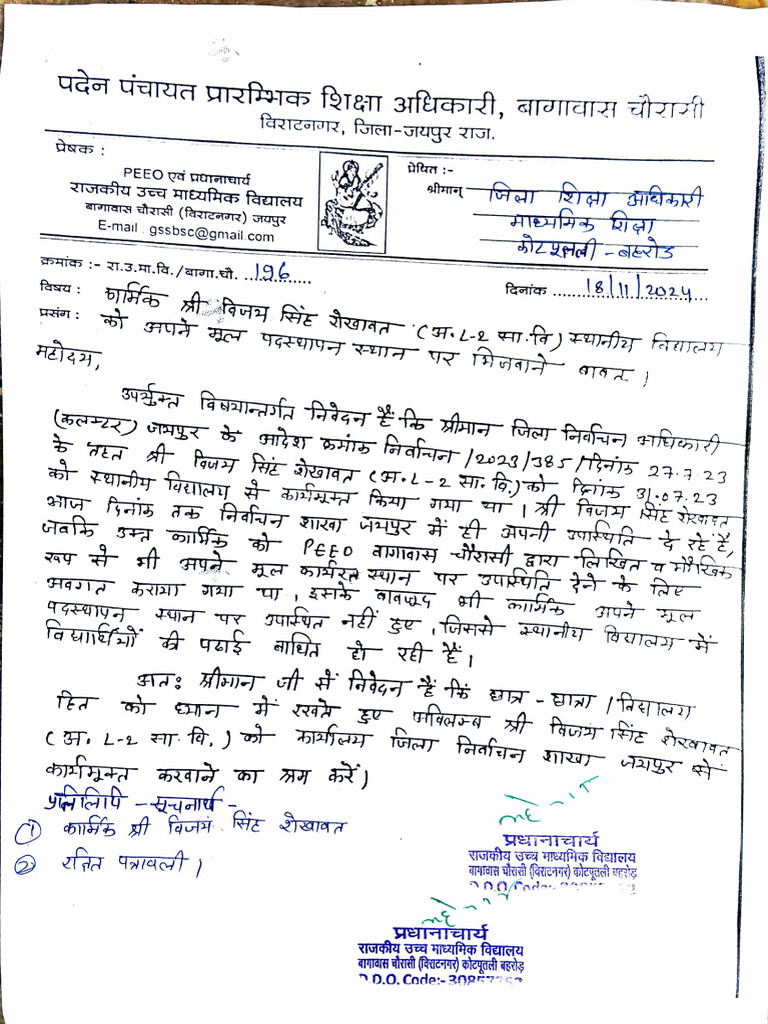 पदेन पंचायत प्रारम्भिक शिक्षा अधिकारी, बागावास चौरासी
विराटनगर, जिला-जयपुर राज.
प्रेषक :
PEEO एवं प्रधानाचार्य
राजकीय उच्च माध्यमिक विद्यालय
बागावास चौरासी (विराटनगर) जयपुर
E-mail : gssbsc@gmail.com
प्रेषित :-
श्रीमान् जिला शिक्षा अधिकारी
माध्यमिक शिक्षा
कोटपूतली - बहरोड
क्रमांक :- रा.उ.मा.वि./बागा.चौ. 196
दिनांक 18/11/2024
विषय : कार्मिक श्री विजय सिंह शेखावत (अ. L-2 सा.वि) स्थानीय विद्यालय
प्रसंग : को अपने मूल पदस्थापन स्थान पर भिजवाने बाबत।
महोदय,
उपर्युक्त विषयान्तर्गत निवेदन हैं कि श्रीमान जिला निर्वाचन अधिकारी
(कलक्टर) जयपुर के आदेश क्रमांक निर्वाचन /2023/385/दिनांक 27.7.23
के तहत श्री विजय सिंह शेखावत (अ. L-2 सा. वि.) को दिनांक 31.07.23
को स्थानीय विद्यालय से कार्यमुक्त किया गया था। श्री विजय सिंह शेखावत
आज दिनांक तक निर्वाचन शाखा जयपुर में ही अपनी उपस्थिति दे रहे हैं,
जबकि उक्त कार्मिक को PEEO बागावास चौरासी द्वारा लिखित व मौखिक
रूप से भी अपने मूल कार्यरत स्थान पर उपस्थिति देने के लिए
अवगत कराया गया था। इसके बावजूद भी कार्मिक अपने मूल
पदस्थापन स्थान पर उपास्थित नहीं हुए, जिससे स्थानीय विद्यालय में
विद्यार्थियों की पढाई बाधित हो रही हैं।
अतः श्रीमान जी सें निवेदन हैं कि छात्र - छात्रा / विद्यालय
हित को ध्यान में रखते हुए अविलम्ब श्री विजय सिंह शेखावत
(अ. L-2 सा. वि.) को कार्यालय जिला निर्वाचन शाखा जयपुर से
कार्यमुक्त करवाने का श्रम करें।
प्रतिलिपि - सूचनार्थ -
① कार्मिक श्री विजय सिंह शेखावत
② रक्षित पत्रावली।
प्रधानाचार्य
राजकीय उच्च माध्यमिक विद्यालय
बागावास चौरासी (विराटनगर) कोटपूतली बहरोड़
D.D.O. Code:-
प्रधानाचार्य
राजकीय उच्च माध्यमिक विद्यालय
बागावास चौरासी (विराटनगर) कोटपूतली बहरोड़
D.D.O. Code:-